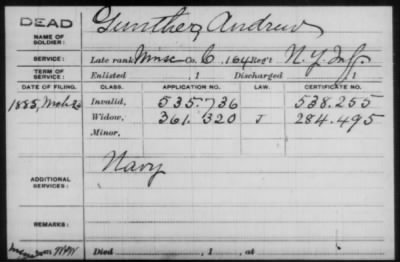 DEAD
NAME OF SOLDIER: Gunther, Andrew
SERVICE: Late rank Co. C, 164 Reg't N.Y. Inf
TERM OF SERVICE: Enlisted , 1 Discharged , 1
DATE OF FILING. CLASS. APPLICATION NO. LAW. CERTIFICATE NO.
1885, Mch 26 Invalid, 535.736 538.255
Widow, 361.320 J 284.495
Minor,
Navy
ADDITIONAL SERVICES:
REMARKS:
Died , 1 , at